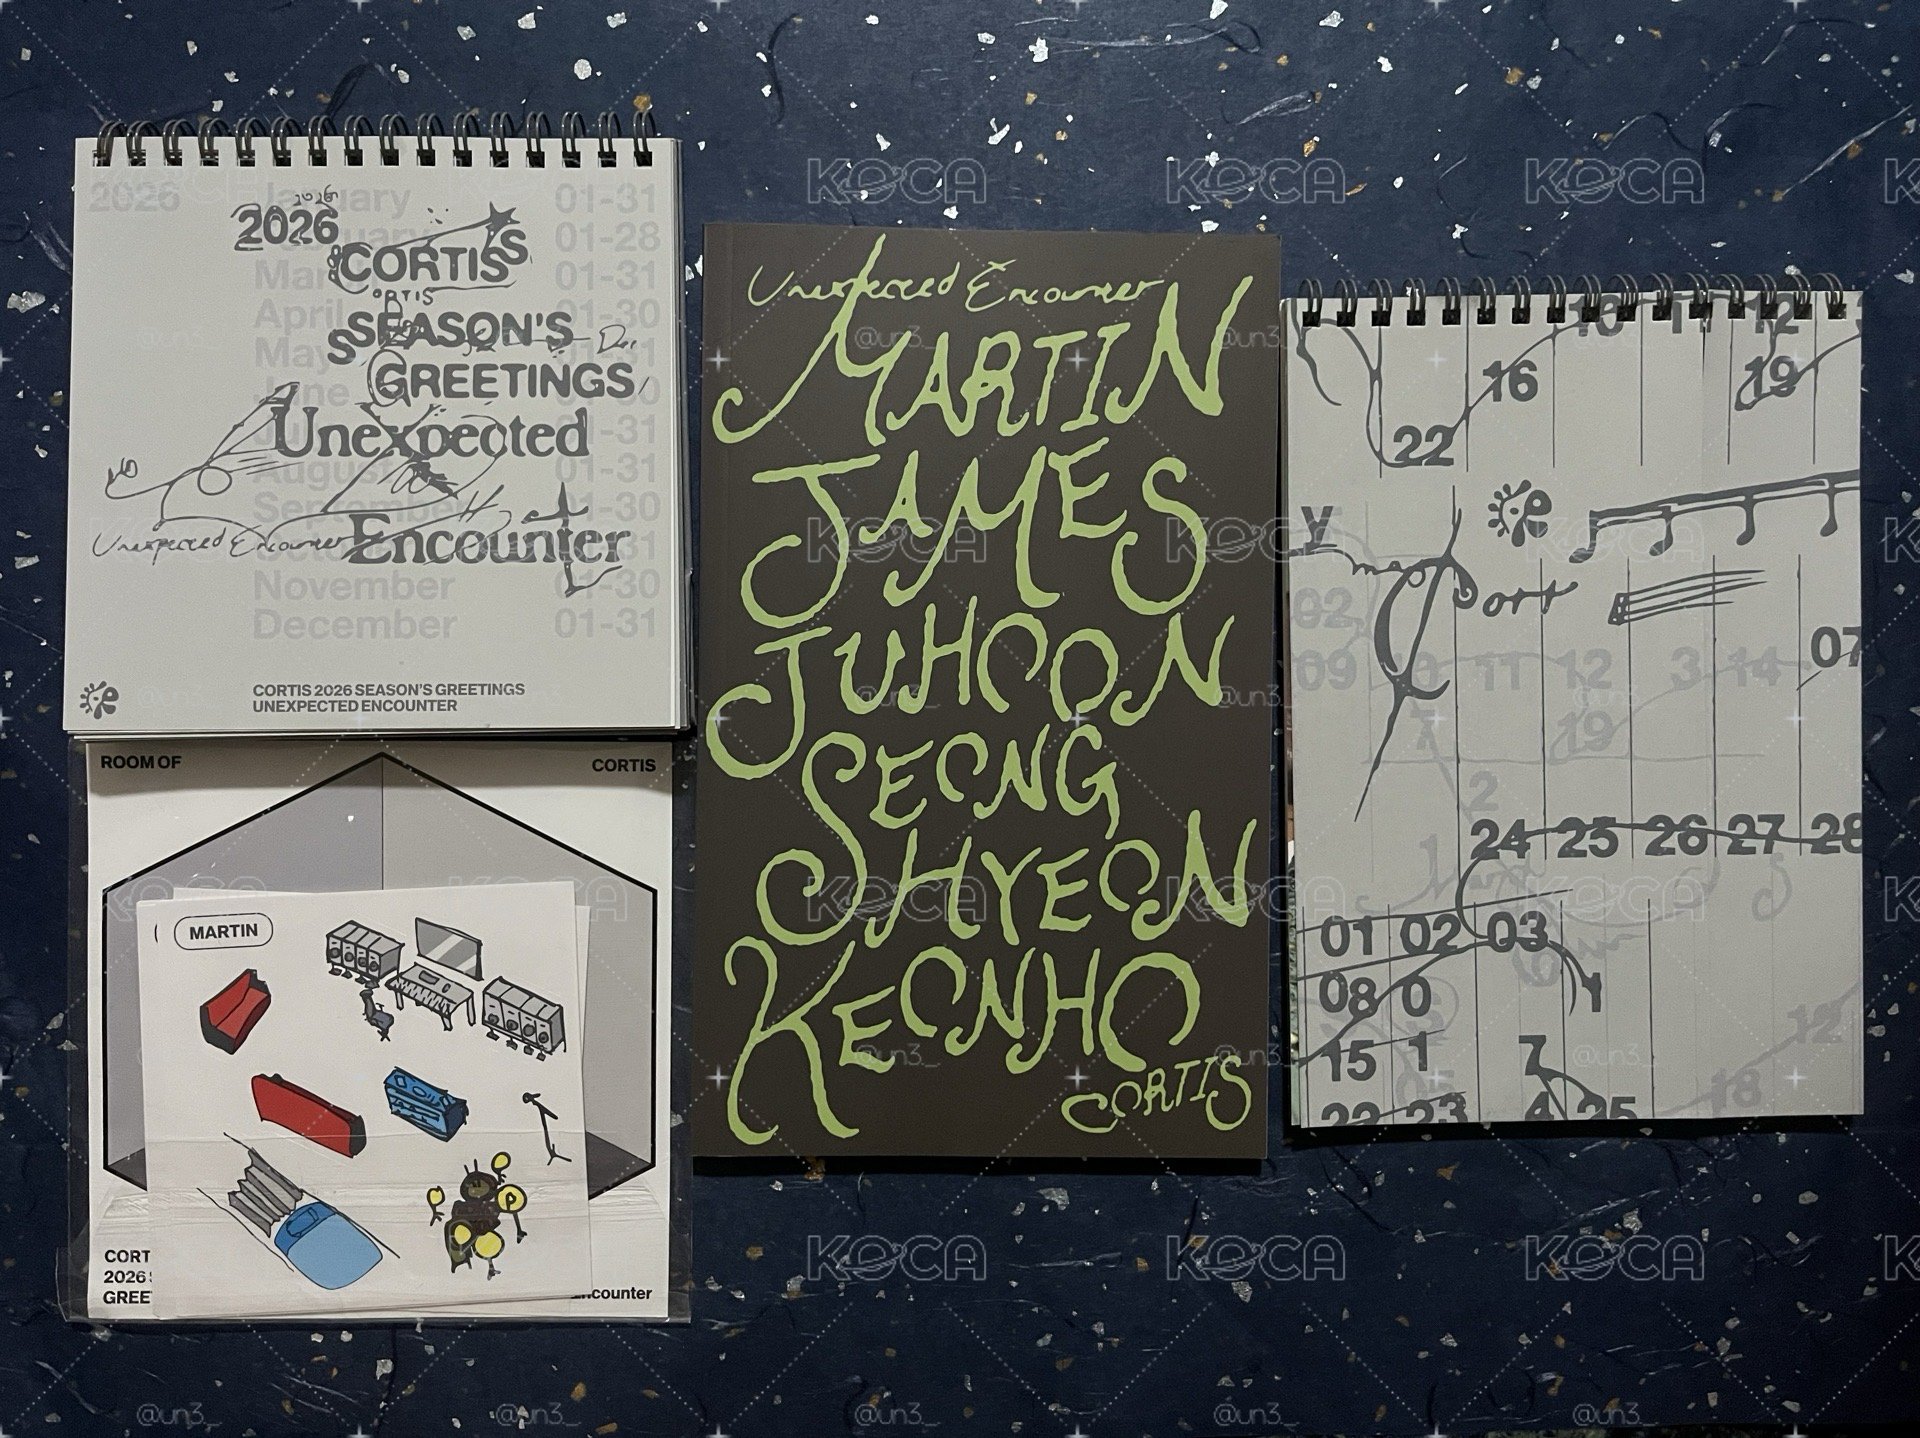 2026 January 01-31
01-28
01-31
April 01-30
May 01-31
June
August 01-31
September 01-30
November 01-30
December 01-31
2026
2026
CORTIS'S
CORTIS
SEASON'S
GREETINGS
Unexpected
Unexpected Encounter
Encounter
CORTIS 2026 SEASON'S GREETINGS
UNEXPECTED ENCOUNTER
ROOM OF
CORTIS
MARTIN
CORT
2026
GREE
Encounter
Unexpected Encounter
MARTIN
JAMES
JUHOON
SEONG
HYEON
KEONHO
CORTIS
10 11 12
16 19
22
02
07
09 11 12 3 14
19
2
24 25 26 27 28
01 02 03
08 0 1
12
15 1 7
18
22 23 4 25
KOCA
@un3_